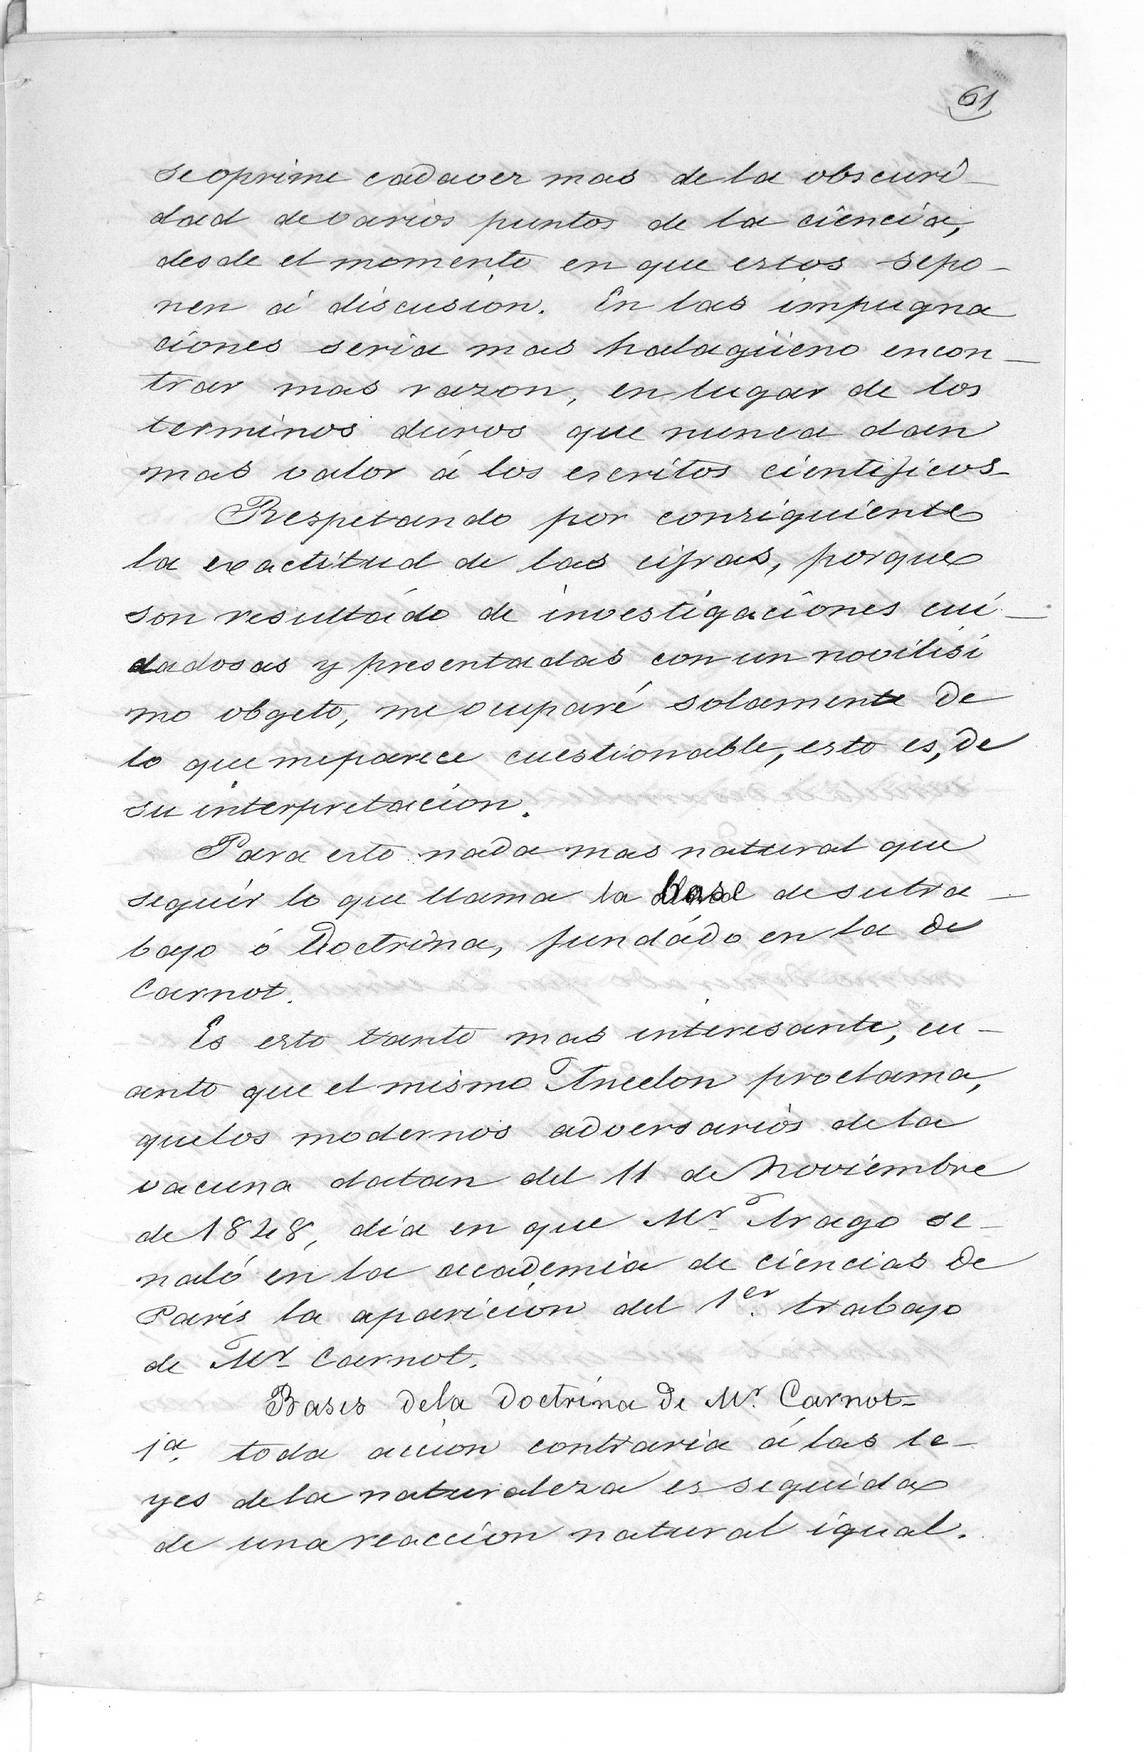 61
se oprime cada ver mas de la obscuri-
dad de varios puntos de la ciencia,
desde el momento en que estos se po-
nen á discusion. En las impugna
ciones seria mas halagüeno encon-
trar mas razon, en lugar de los
terminos duros que nunca dan
mas valor á los escritos cientificos-
Respetando por consiguiente
la exactitud de las cifras, porque
son resultado de investigaciones cui-
dadosas y presentadas con un novilisi
mo obgeto, me ocuparé solamente de
lo que me parece cuestionable, esto es, de
su interpretacion.
Para esto nada mas natural que
seguir lo que llama la base de su tra-
bajo ó Doctrina, fundádo en la de
Carnot.
Es esto tanto mas interesante, cu-
anto que el mismo Ancelon proclama,
que los modernos adversarios de la
vacuna datan del 11 de Noviembre
de 1848, dia en que Mr. Arago se-
naló en la academia de ciencias de
Paris la aparicion del 1er. trabajo
de Mr. Carnot.
Bases de la Doctrina de Mr. Carnot-
1a. toda accion contraria á las le-
yes de la naturaleza es seguida
de una reaccion natural igual.